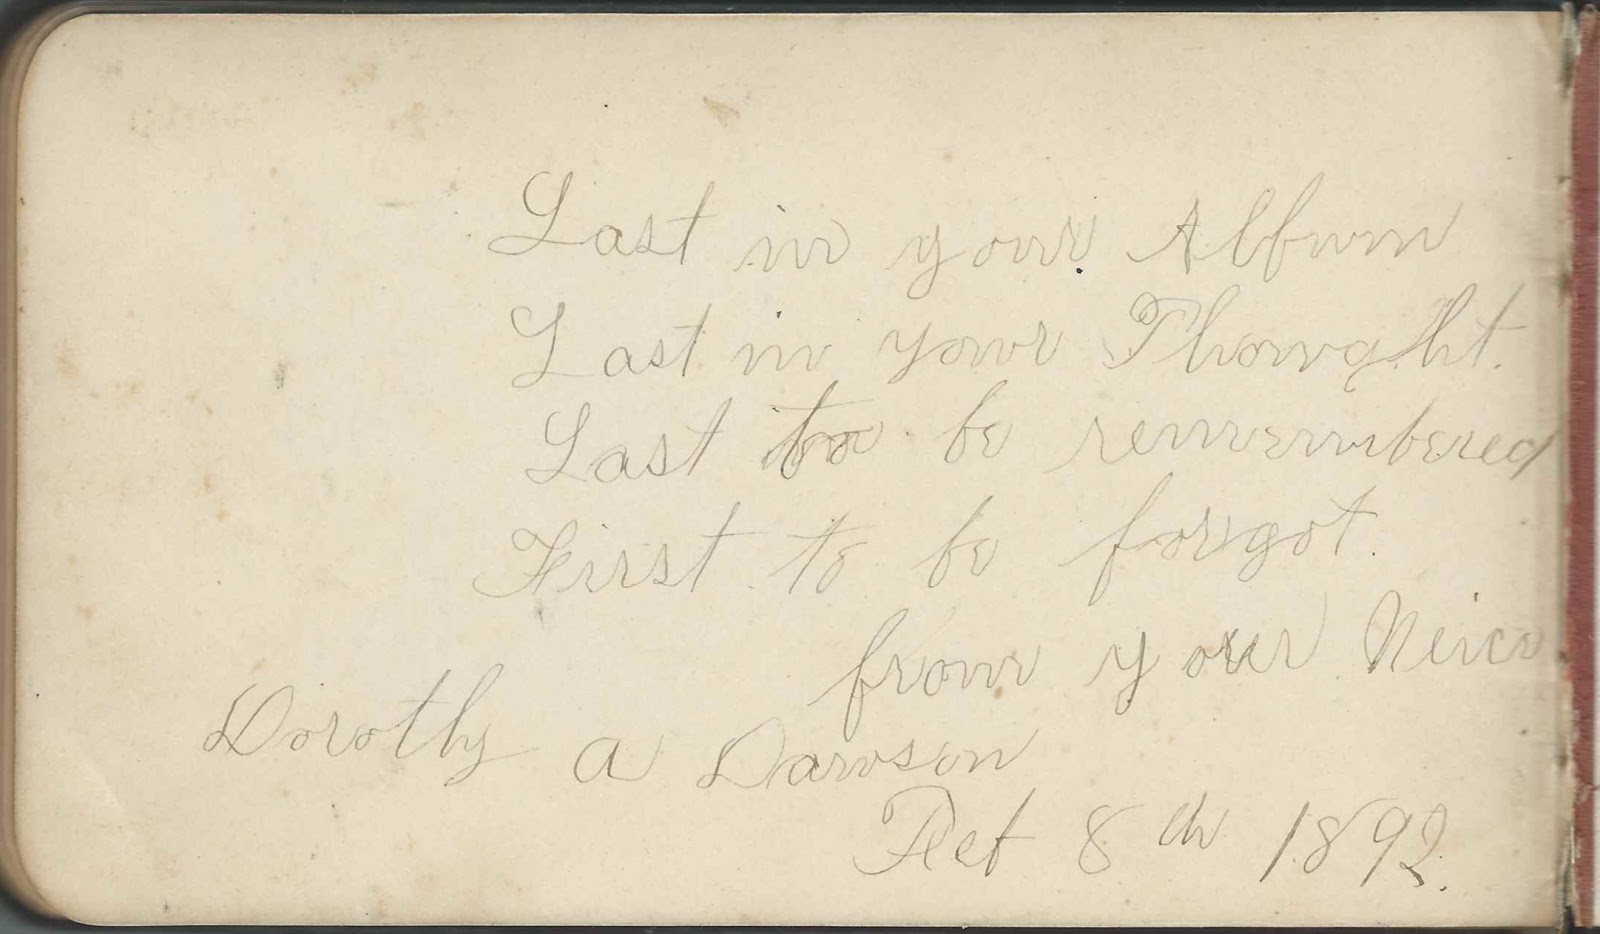 Last in your Album
Last in your Thought.
Last to be remembered
First to be forgot.
from your Neice
Dorothy a Dawson
8th 1892.